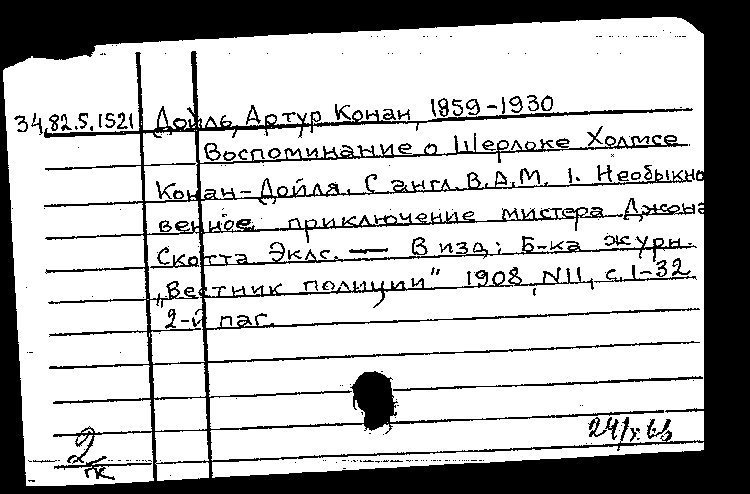 34.82.5.1521 Дойль, Артур Конан, 1859-1930
Воспоминание о Шерлоке Холмсе
Конан-Дойля. С англ. В.А.М. 1. Необыкно
венное приключение мистера Джона
Скотта Эклс. — В изд: Б-ка журн.
„Вестник полиции" 1908, N11, с. 1-32
2-й паг.
2/гк